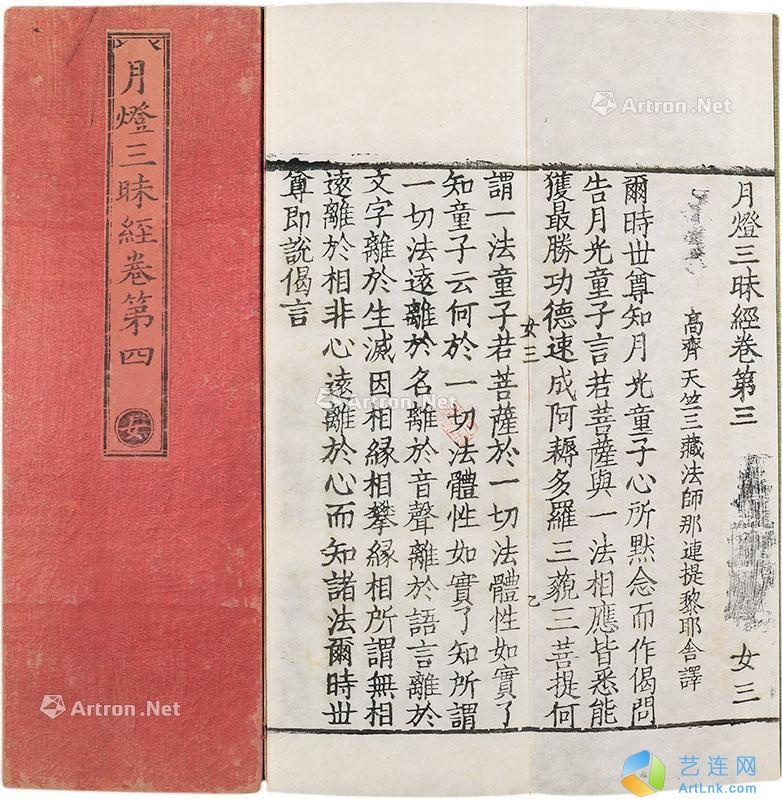 月燈三昧經卷第四
女
月燈三昧經卷第三 女三
高齊天竺三藏法師那連提黎耶舍譯
爾時世尊知月光童子心所默念而作偈問
告月光童子言若菩薩與一法相應皆悉能
獲最勝功德速成阿耨多羅三藐三菩提何
女三
乙
謂一法童子若菩薩於一切法體性如實了
知童子云何於一切法體性如實了知所謂
一切法遠離於名離於音聲離於語言離於
文字離於生滅因相緣相攀緣相所謂無相
遠離於相非心遠離於心而知諸法爾時世
尊即說偈言
Artron.Net
Artron.Net
Artron.Net
Artron.Net
艺连网
ArtLnk.com